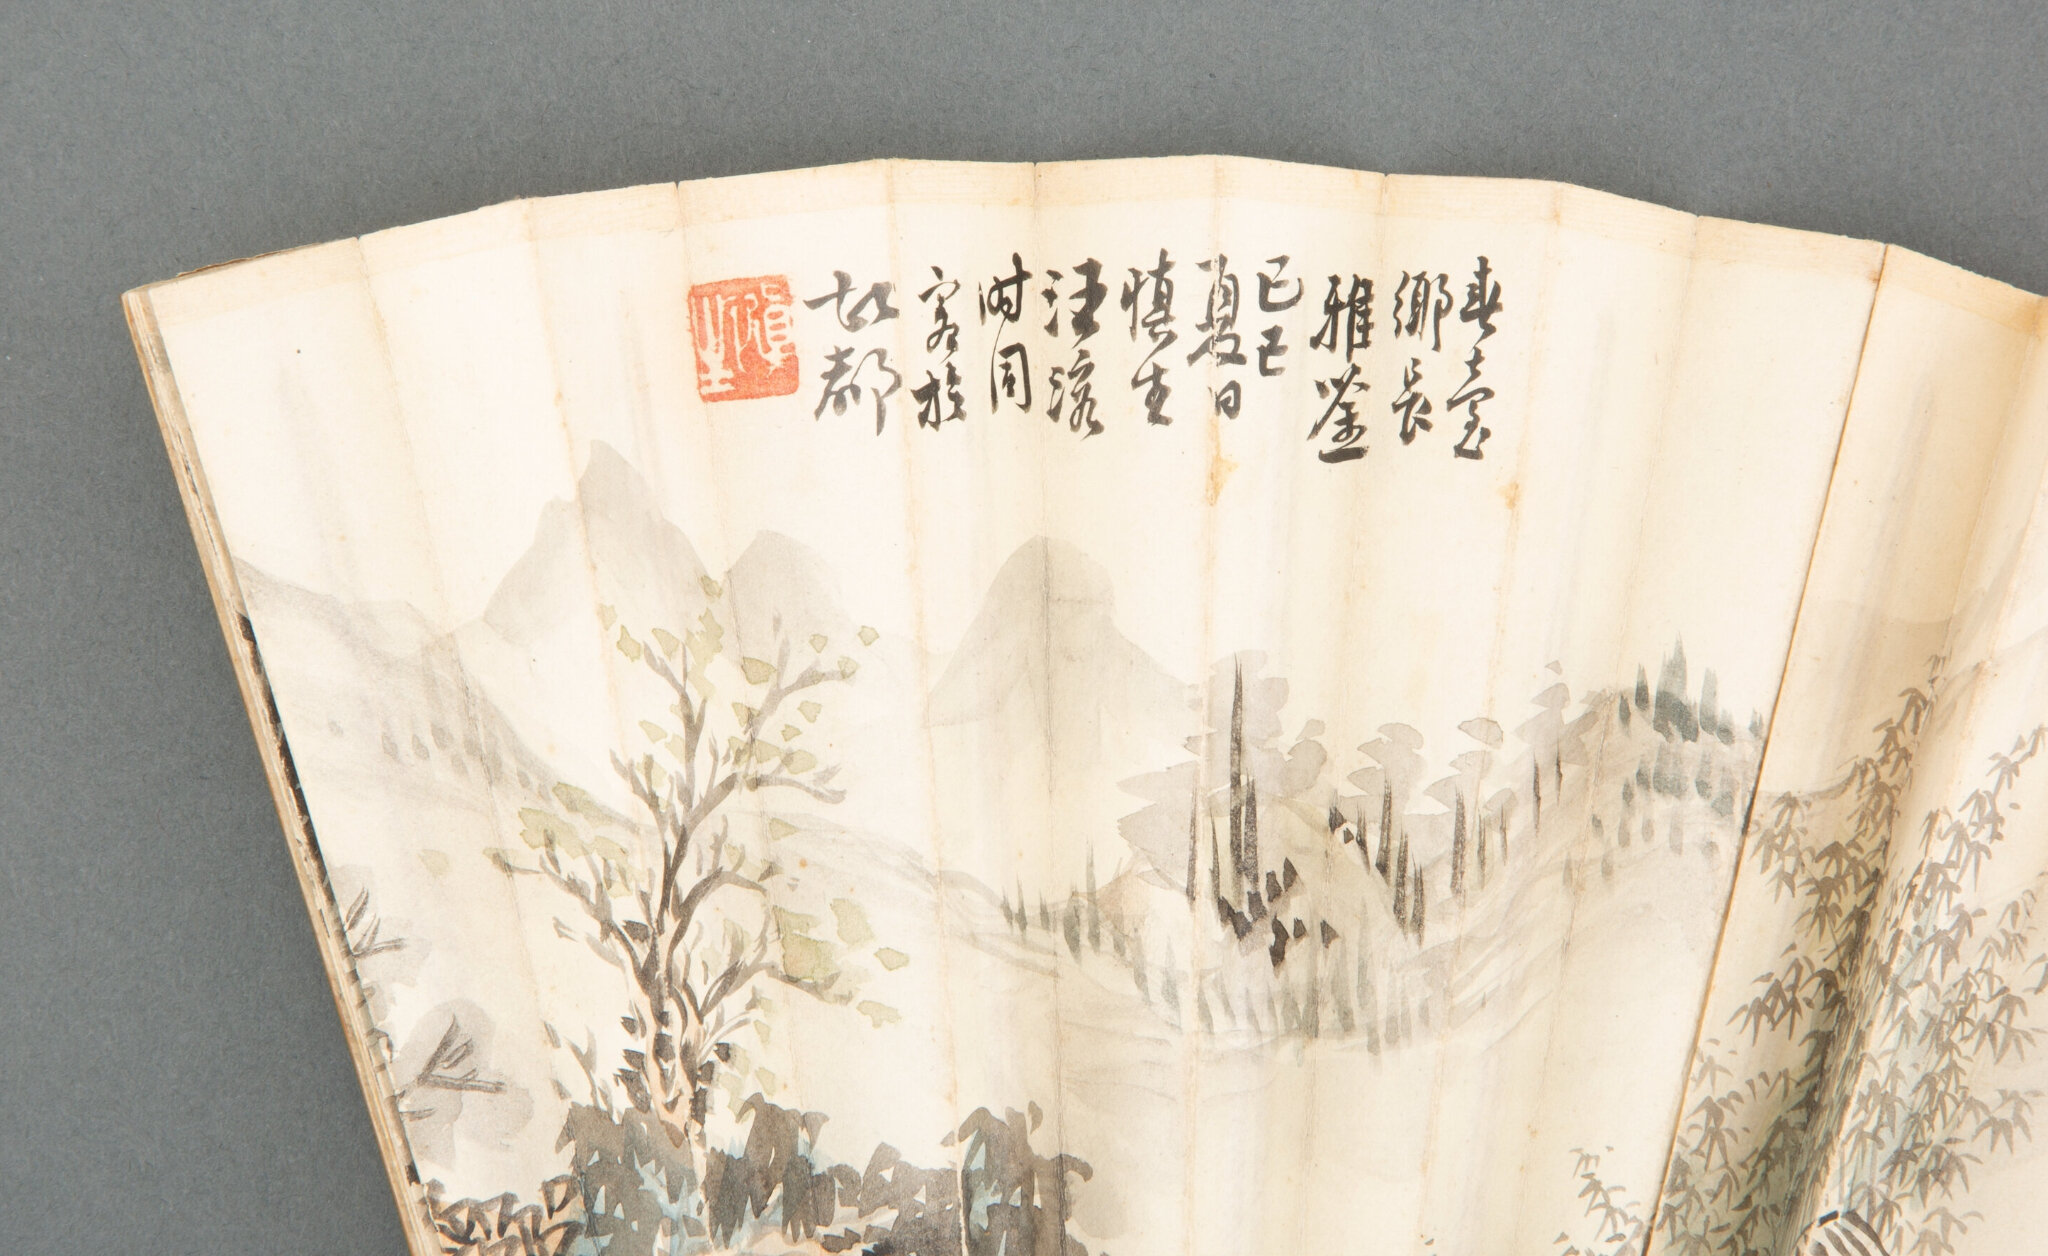 春臺
鄉長
雅鑒
己巳
夏日
慎生
汪溶
时同
客於
故都
慎生